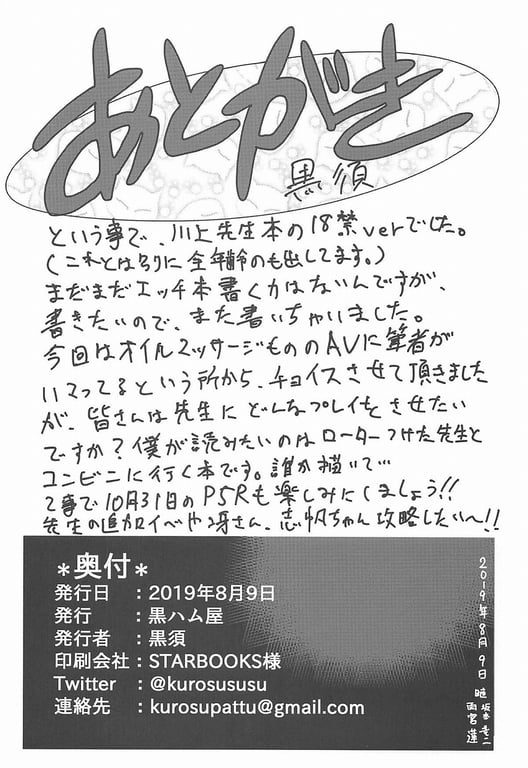 あとがき
黒須
という事で、川上先生本の18禁verでした。
(これとは別に全年齢のも出してます。)
まだまだエッチ本書く力はないんですが、
書きたいので、また書いちゃいました。
今回はオイルマッサージもののAVに筆者が
ハマってるという所から、チョイスさせて頂きました
が、皆さんは先生にどんなプレイをさせたい
ですか?僕が読みたいのはローターつけた先生と
コンビニに行く本です。誰か描いて…
て事で10月31日のP5Rも楽しみにしましょう!!
先生の追加イベや冴さん、志帆ちゃん攻略したい〜!!
*奥付*
発行日 :2019年8月9日
発行 :黒ハム屋
発行者 :黒須
印刷会社:STARBOOKS様
Twitter :@kurosususu
連絡先 :kurosupattu@gmail.com
2019年8月9日
雨宮蓮